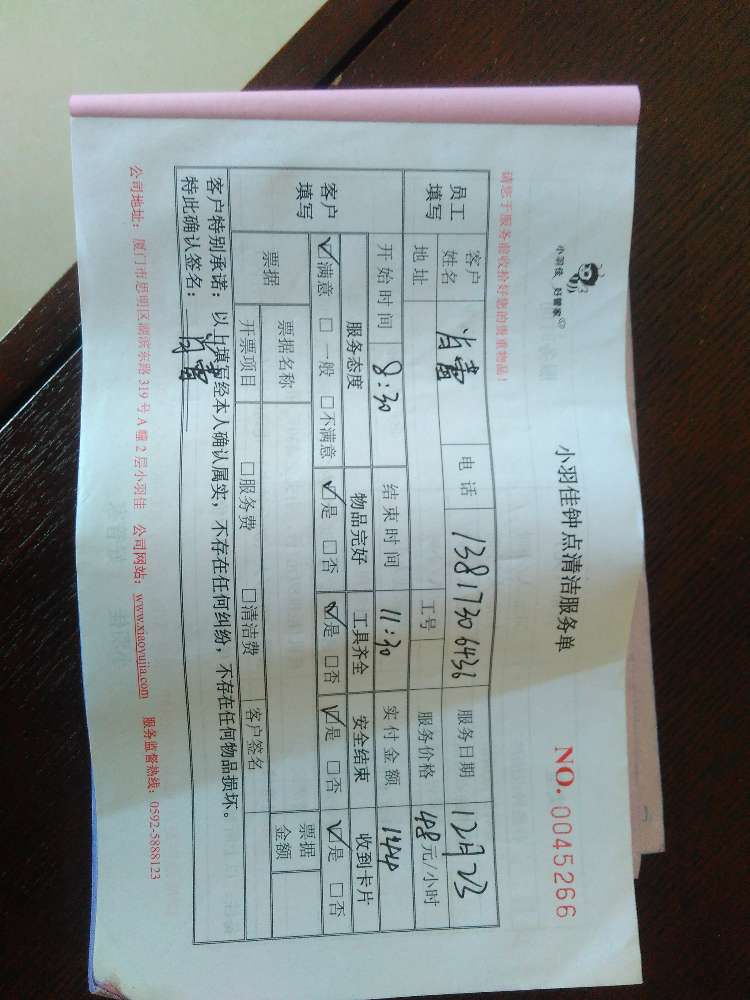 小羽佳 好管家
小羽佳钟点清洁服务单
NO. 0045266
请您于服务前收拾好您的贵重物品！
员工填写 客户姓名 肖雷 电话 13817306436 服务日期 12月23
地址 工号 服务价格 48元/小时
客户填写 开始时间 8:30 结束时间 11:30 实付金额 144
服务态度 物品完好 工具齐全 安全结束 收到卡片
☑满意 □一般 □不满意 ☑是 □否 ☑是 □否 ☑是 □否 ☑是 □否
票据 票据名称 票据金额
开票项目 □服务费 □清洁费 客户签名
客户特别承诺：以上填写经本人确认属实，不存在任何纠纷，不存在任何物品损坏。
特此确认签名：肖雷
公司地址：厦门市思明区湖滨东路319号A幢2层小羽佳 公司网站：www.xiaoyujia.com 服务监督热线：0592-5888123